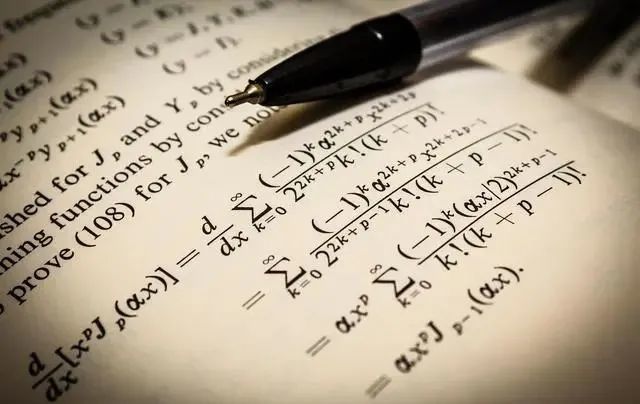 (y = J, Y,
(y = I).
y p+1(αx)
αx⁻ᵖy p+1(αx)
shed for J p and Y p by
ning functions by
prove (108) for J p, we
d/dx[xᵖJ p(αx)] = d/dx ∑_{k=0}^{∞} (−1)ᵏα²ᵏ⁺ᵖx²ᵏ⁺²ᵖ / 2²ᵏ⁺ᵖk!(k + p)!
= ∑_{k=0}^{∞} (−1)ᵏα²ᵏ⁺ᵖx²ᵏ⁺²ᵖ⁻¹ / 2²ᵏ⁺ᵖ⁻¹k!(k + p − 1)!
= αxᵖ ∑_{k=0}^{∞} (−1)ᵏ(αx|2)²ᵏ⁺ᵖ⁻¹ / k!(k + p − 1)!
= αxᵖJ p−1(αx).